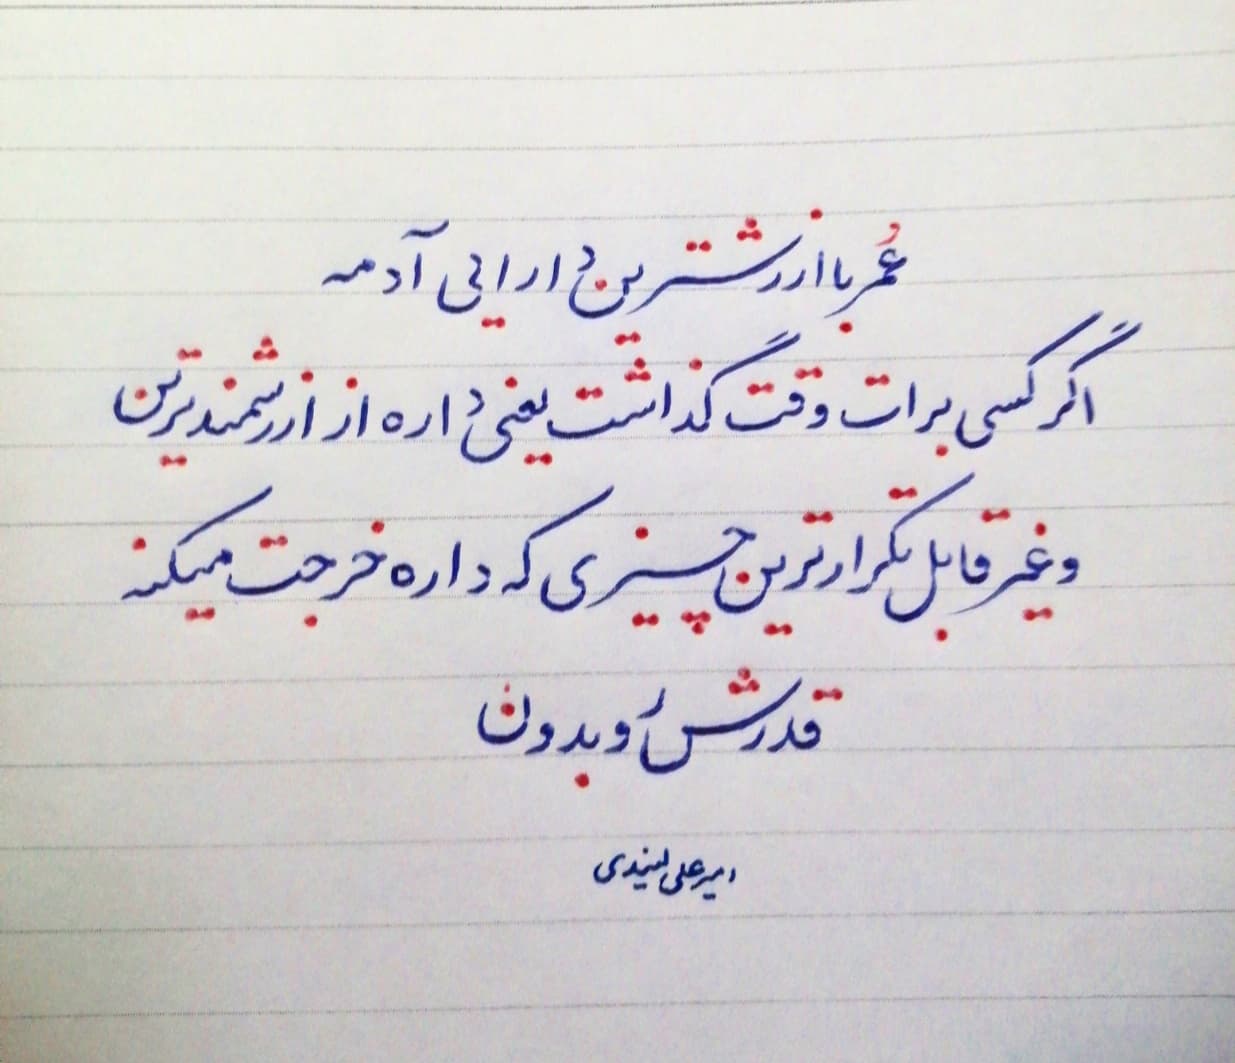 عُمر با ارزشترین دارایی آدمه
اگر کسی برات وقت گذاشت یعنی داره از ارزشمندترین
و غیر قابل تکرارترین چیزی که داره خرجت میکنه
قدرشُ و بدون
امیرعلی